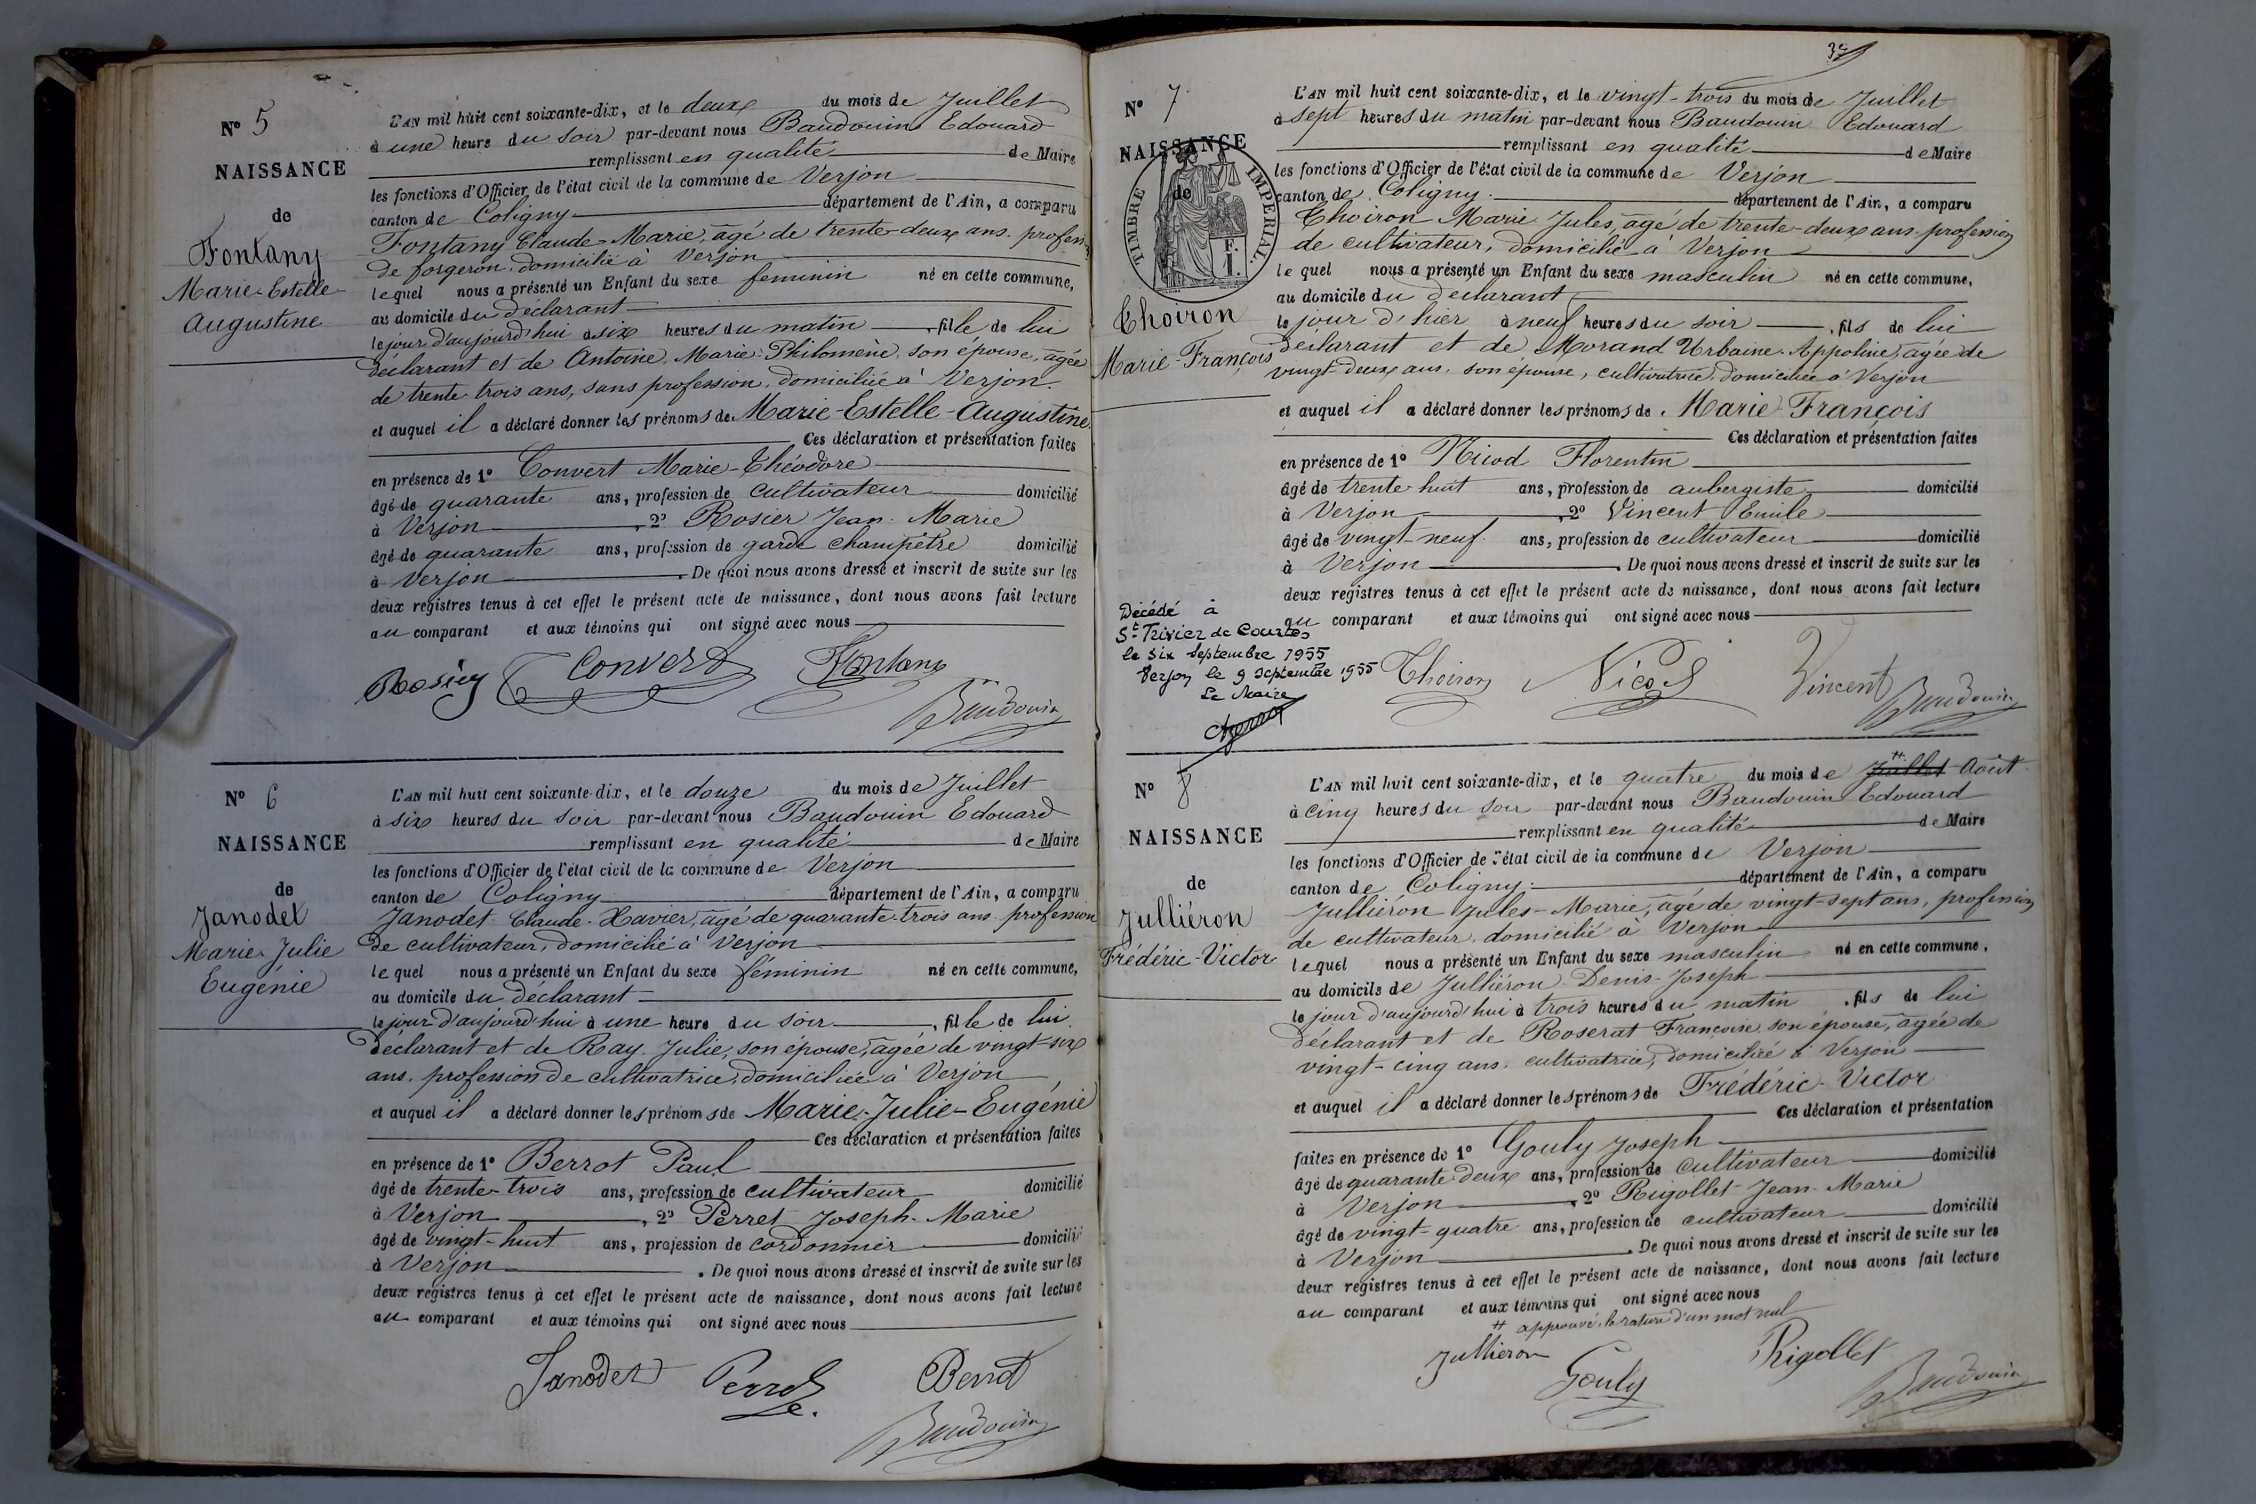 N° 5
NAISSANCE
de
Fontany
Marie-Estelle
Augustine
L'AN mil huit cent soixante-dix, et le deux du mois de Juillet
à une heure du soir par-devant nous Baudouin Edouard
remplissant en qualité de Maire
les fonctions d'Officier de l'état civil de la commune de Verjon
canton de Coligny département de l'Ain, a comparu
Fontany Claude-Marie, âgé de trente-deux ans, profession
de forgeron, domicilié à Verjon
lequel nous a présenté un Enfant du sexe feminin né en cette commune,
au domicile du déclarant
le jour d'aujourd'hui à six heures du matin, fille de lui
déclarant et de Antoine Marie-Philomène, son épouse, âgée
de trente trois ans, sans profession, domiciliée à Verjon.
et auquel il a déclaré donner les prénoms de Marie-Estelle-Augustine
Ces déclaration et présentation faites
en présence de 1° Convert Marie-Théodore
âgé de quarante ans, profession de cultivateur domicilié
à Verjon, 2° Rosier Jean-Marie
âgé de quarante ans, profession de garde champêtre domicilié
à Verjon. De quoi nous avons dressé et inscrit de suite sur les
deux registres tenus à cet effet le présent acte de naissance, dont nous avons fait lecture
au comparant et aux témoins qui ont signé avec nous
Rosier Convert Fontany
Baudouin
N° 6
NAISSANCE
de
Janodet
Marie-Julie
Eugénie
L'AN mil huit cent soixante-dix, et le douze du mois de Juillet
à six heures du soir par-devant nous Baudouin Edouard
remplissant en qualité de Maire
les fonctions d'Officier de l'état civil de la commune de Verjon
canton de Coligny département de l'Ain, a comparu
Janodet Claude-Xavier, âgé de quarante-trois ans, profession
de cultivateur, domicilié à Verjon
lequel nous a présenté un Enfant du sexe féminin né en cette commune,
au domicile du déclarant
le jour d'aujourd'hui à une heure du soir, fille de lui
déclarant et de Ray Julie, son épouse, âgée de vingt-six
ans, profession de cultivatrice, domiciliée à Verjon
et auquel il a déclaré donner les prénoms de Marie-Julie-Eugénie
Ces déclaration et présentation faites
en présence de 1° Berrot Paul
âgé de trente-trois ans, profession de cultivateur domicilié
à Verjon, 2° Perret Joseph-Marie
âgé de vingt-huit ans, profession de cordonnier domicilié
à Verjon. De quoi nous avons dressé et inscrit de suite sur les
deux registres tenus à cet effet le présent acte de naissance, dont nous avons fait lecture
au comparant et aux témoins qui ont signé avec nous
Janodet Perret Berrot
Baudouin
N° 7
NAISSANCE
de
TIMBRE IMPERIAL.
F.
I.
Thoiron
Marie-François
L'AN mil huit cent soixante-dix, et le vingt-trois du mois de Juillet
à sept heures du matin par-devant nous Baudouin Edouard
remplissant en qualité de Maire
les fonctions d'Officier de l'état civil de la commune de Verjon
canton de Coligny département de l'Ain, a comparu
Thoiron Marie Jules, âgé de trente-deux ans, profession
de cultivateur, domicilié à Verjon
lequel nous a présenté un Enfant du sexe masculin né en cette commune,
au domicile du déclarant
le jour d'hier à neuf heures du soir, fils de lui
déclarant et de Morand Urbaine-Appoline, âgée de
vingt-deux ans, son épouse, cultivatrice, domiciliée à Verjon
et auquel il a déclaré donner les prénoms de Marie François
Ces déclaration et présentation faites
en présence de 1° Nicod Florentin
âgé de trente-huit ans, profession de aubergiste domicilié
à Verjon, 2° Vincent Emile
âgé de vingt-neuf ans, profession de cultivateur domicilié
à Verjon. De quoi nous avons dressé et inscrit de suite sur les
deux registres tenus à cet effet le présent acte de naissance, dont nous avons fait lecture
au comparant et aux témoins qui ont signé avec nous
Décédé à
St Trivier de Courtes
le six septembre 1955
Verjon le 9 septembre 1955
Le Maire
Thoiron Nicod Vincent Baudouin
N° 8
NAISSANCE
de
Julliéron
Frédéric-Victor
L'AN mil huit cent soixante-dix, et le quatre du mois de Juillet Août
à cinq heures du soir par-devant nous Baudouin Edouard
remplissant en qualité de Maire
les fonctions d'Officier de l'état civil de la commune de Verjon
canton de Coligny département de l'Ain, a comparu
Julliéron Jules-Marie, âgé de vingt-sept ans, profession
de cultivateur, domicilié à Verjon
lequel nous a présenté un Enfant du sexe masculin né en cette commune,
au domicile de Julliéron Denis-Joseph
le jour d'aujourd'hui à trois heures du matin, fils de lui
déclarant et de Roserat Françoise, son épouse, âgée de
vingt-cinq ans, cultivatrice, domiciliée à Verjon
et auquel il a déclaré donner les prénoms de Frédéric-Victor
Ces déclaration et présentation
faites en présence de 1° Gouly Joseph
âgé de quarante-deux ans, profession de cultivateur domicilié
à Verjon, 2° Rigollet Jean-Marie
âgé de vingt-quatre ans, profession de cultivateur domicilié
à Verjon. De quoi nous avons dressé et inscrit de suite sur les
deux registres tenus à cet effet le présent acte de naissance, dont nous avons fait lecture
au comparant et aux témoins qui ont signé avec nous
# approuvé la rature d'un mot nul
Julliéron Gouly Rigollet Baudouin